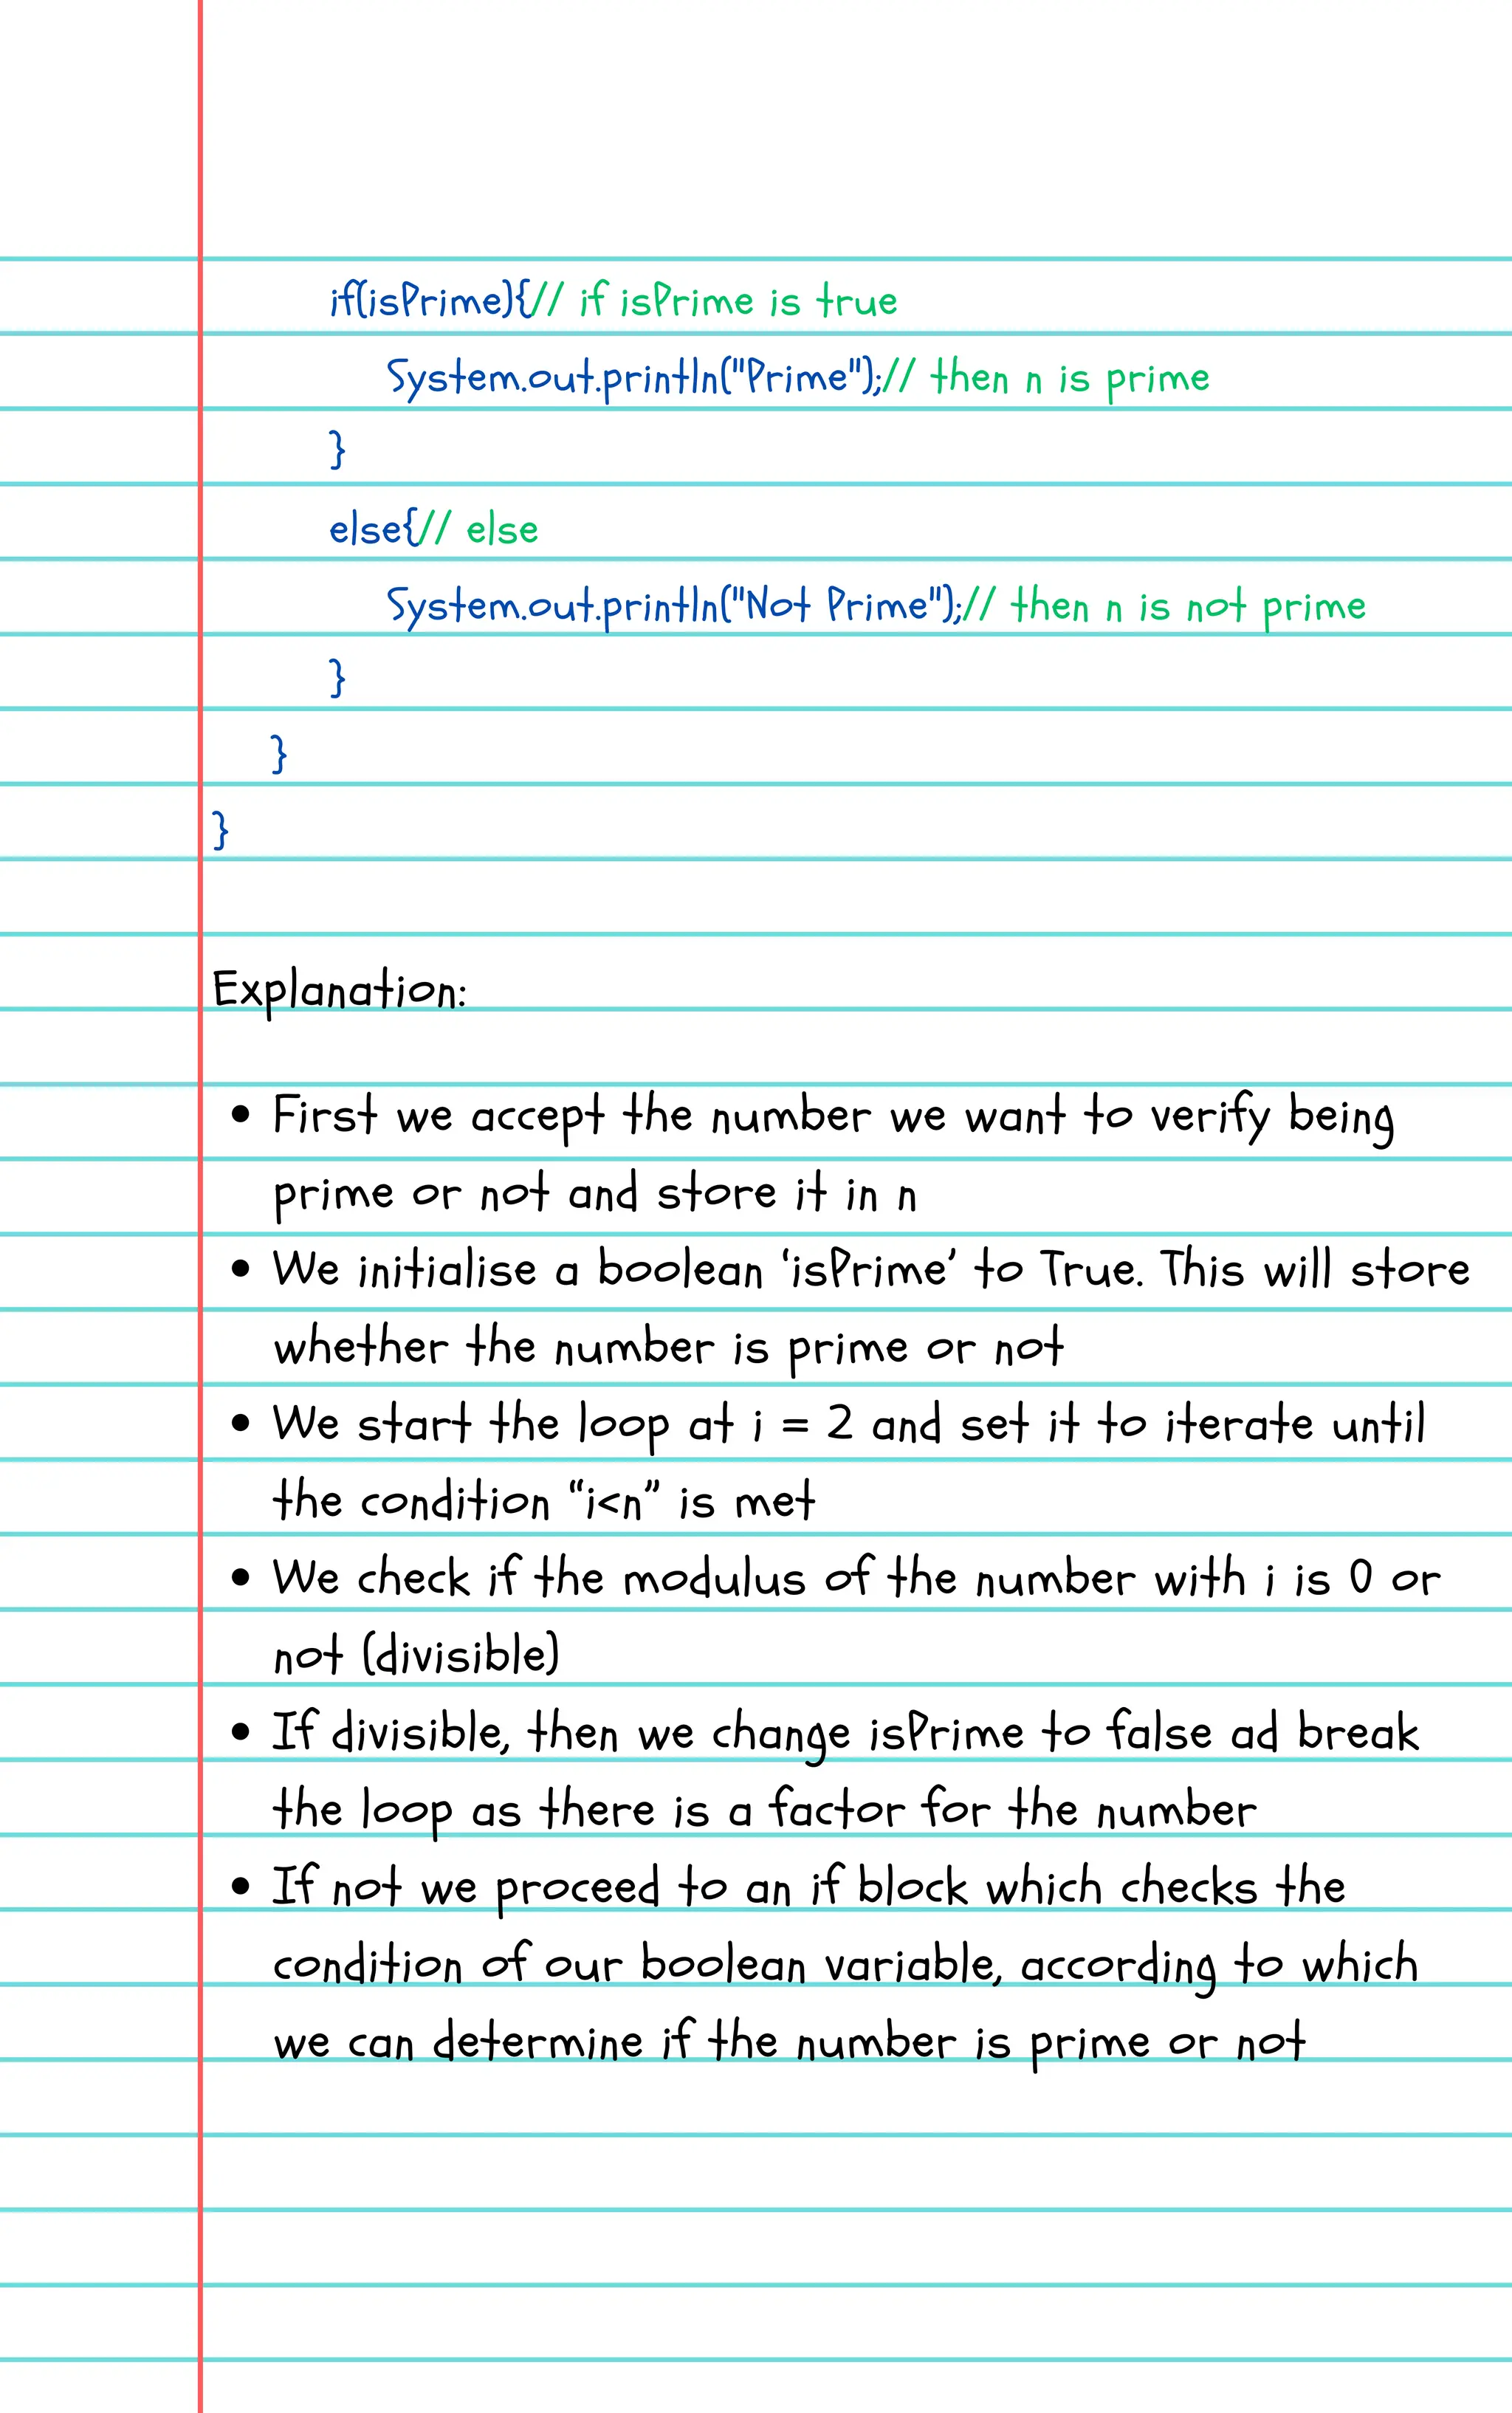 if(isPrime){// if isPrime is true
System.out.println("Prime");// then n is prime
}
else{// else
System.out.println("Not Prime");// then n is not prime
}
}
}
Explanation:
• First we accept the number we want to verify being
prime or not and store it in n
• We initialise a boolean ‘isPrime’ to True. This will store
whether the number is prime or not
• We start the loop at i = 2 and set it to iterate until
the condition “i<n” is met
• We check if the modulus of the number with i is 0 or
not (divisible)
• If divisible, then we change isPrime to false ad break
the loop as there is a factor for the number
• If not we proceed to an if block which checks the
condition of our boolean variable, according to which
we can determine if the number is prime or not